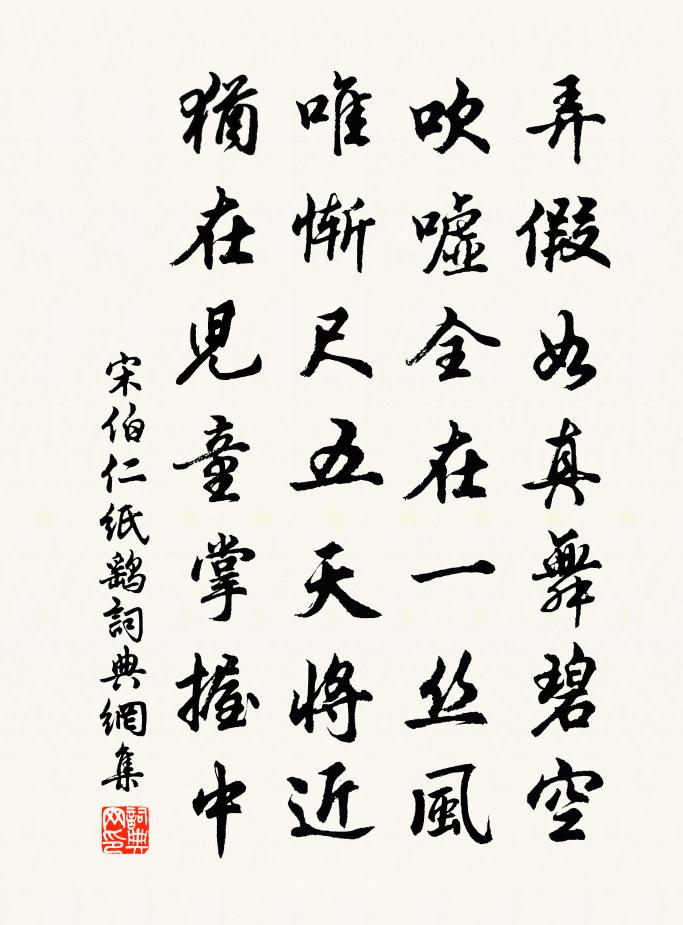 弄假如真舞碧空
吹噓全在一丝風
唯慚尺五天將近
猶在児童掌握中
宋伯仁紙鷂詞典網集
詞典网印